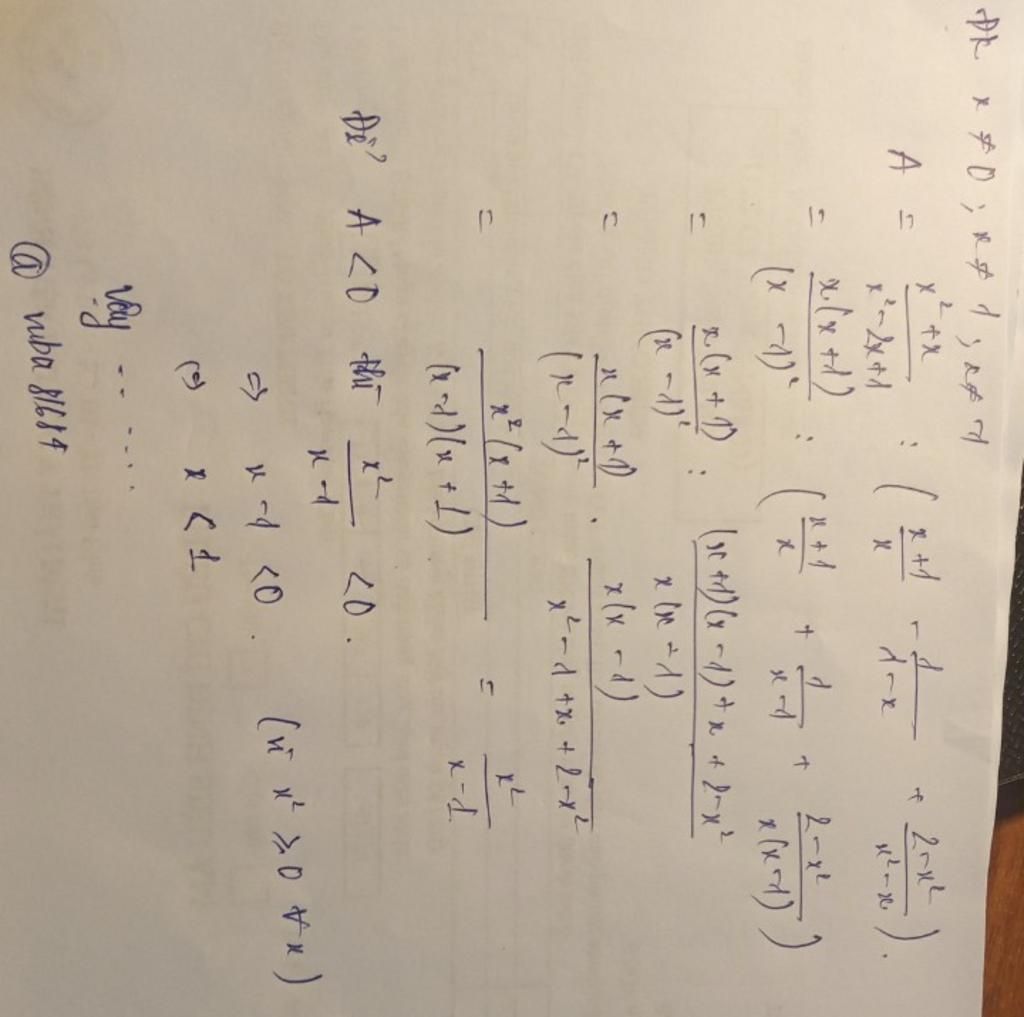 ĐK x ≠ 0 ; x ≠ 1 ; x ≠ -1
A = \frac{x^2+x}{x^2-2x+1} : ( \frac{x+1}{x} - \frac{1}{1-x} + \frac{2-x^2}{x^2-x} ) .
= \frac{x.(x+1)}{(x-1)^2} : ( \frac{x+1}{x} + \frac{1}{x-1} + \frac{2-x^2}{x(x-1)} )
= \frac{x.(x+1)}{(x-1)^2} : \frac{(x+1)(x-1)+x+2-x^2}{x(x-1)}
= \frac{x(x+1)}{(x-1)^2} . \frac{x(x-1)}{x^2-1+x+2-x^2}
= \frac{x^2(x+1)}{(x-1)(x+1)} = \frac{x^2}{x-1}
Để A < 0 thì \frac{x^2}{x-1} < 0 .
=> x-1 < 0 . (vì x^2 ≥ 0 ∀ x )
<=> x < 1
Vậy .......